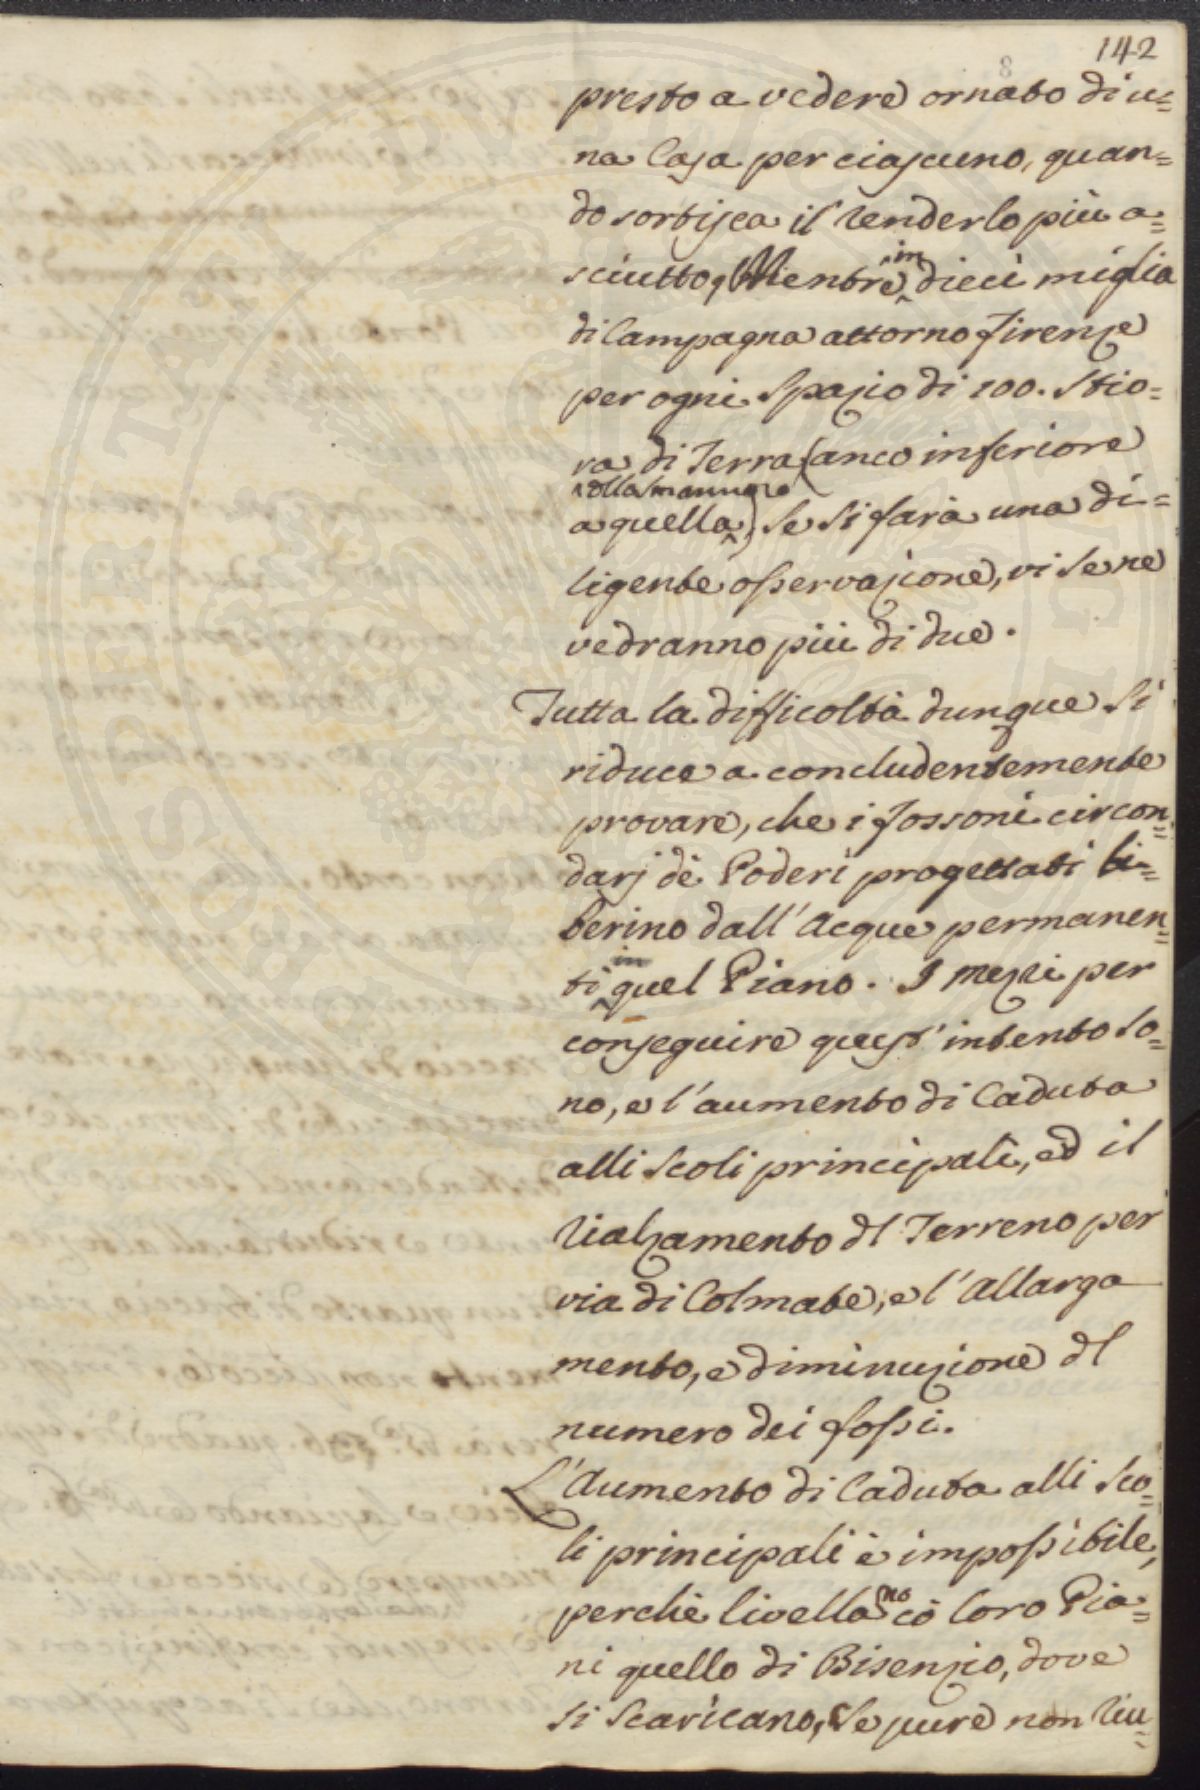 142
8
presto a vedere ornato di u=
na Casa per ciascuno, quan=
do sortisca il renderlo più a=
sciutto, Mentre in dieci miglia
di Campagna attorno Firenze
per ogni Spazio di 100. Stio=
ra di Terra (anco inferiore
a quella della maung.e) se si farà una di=
ligente osservazione, vi se ne
vedranno più di due.
Tutta la difficoltà dunque si
riduce a concludentemente
provare, che i fossoni circon=
darj dè Poderi progettati li=
berino dall'Acque permanen=
ti in quel Piano. I mezzi per
conseguire quest'intento so=
no, e l'aumento di Caduta
alli Scoli principali, ed il
rialzamento dl Terreno per
via di Colmate, e l'Allarga
mento, e diminuzione dl
numero dei fossi.
L'Aumento di Caduta alli Sco=
li principali è impossibile,
perchè livellano cò loro Pia=
ni quello di Bisenzio, dove
si Scaricano, Se pure non riu=